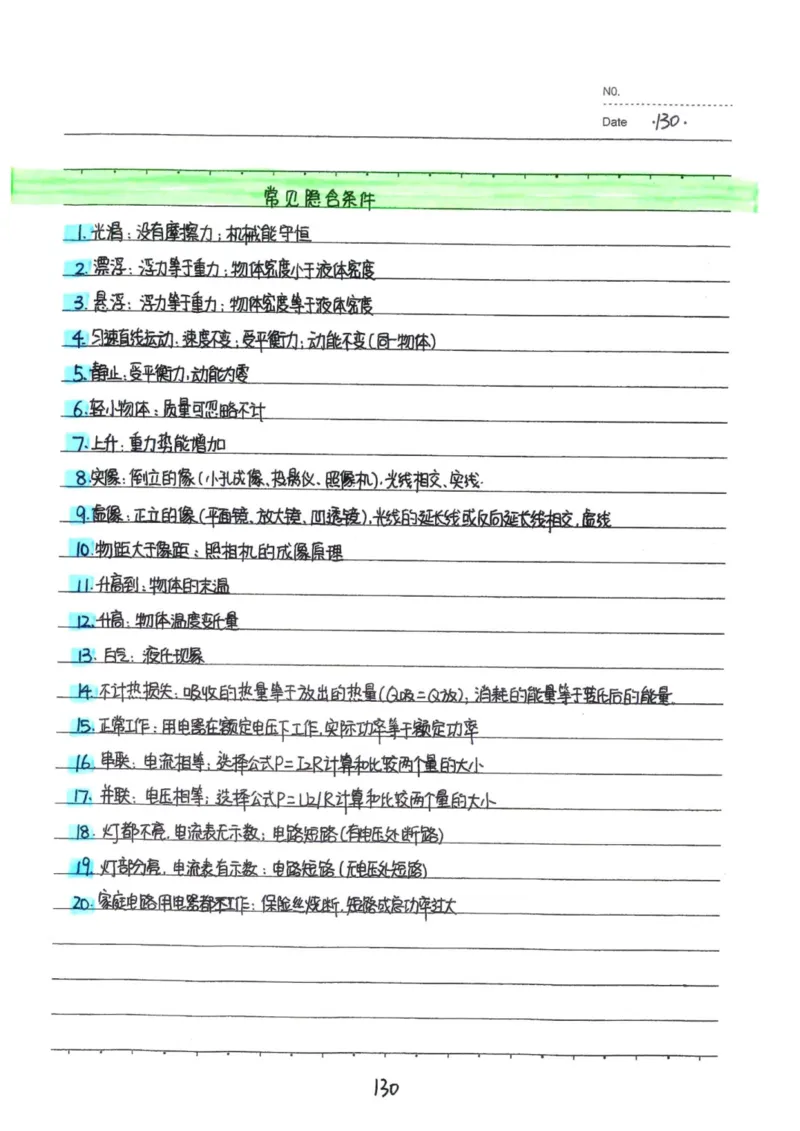 NO.
Date ·130·
常见隐含条件
1.光滑:没有摩擦力;机械能守恒
2.漂浮:浮力等于重力;物体密度小于液体密度
3.悬浮:浮力等于重力;物体密度等于液体密度
4.匀速直线运动.速度不变;受平衡力;动能不变(同一物体)
5.静止:受平衡力,动能为零
6.轻小物体:质量可忽略不计
7.上升:重力势能增加
8.实像:倒立的像(小孔成像、投影仪、照像机),光线相交、实线.
9.虚像:正立的像(平面镜、放大镜、凹透镜),光线的延长线或反向延长线相交,虚线
10.物距大于像距:照相机的成像原理
11.升高到:物体的末温
12.升高:物体温度变化量
13.白气:液化现象
14.不计热损失:吸收的热量等于放出的热量(Q吸=Q放);消耗的能量等于转化后的能量.
15.正常工作:用电器在额定电压下工作,实际功率等于额定功率
16.串联:电流相等;选择公式P=I2R计算和比较两个量的大小
17.并联:电压相等;选择公式P=U2/R计算和比较两个量的大小
18.灯都不亮,电流表无示数:电路短路(有电压处断路)
19.灯部分亮,电流表有示数:电路短路(无电压处短路)
20.家庭电路用电器都不工作:保险丝烧断,短路或总功率过大
130